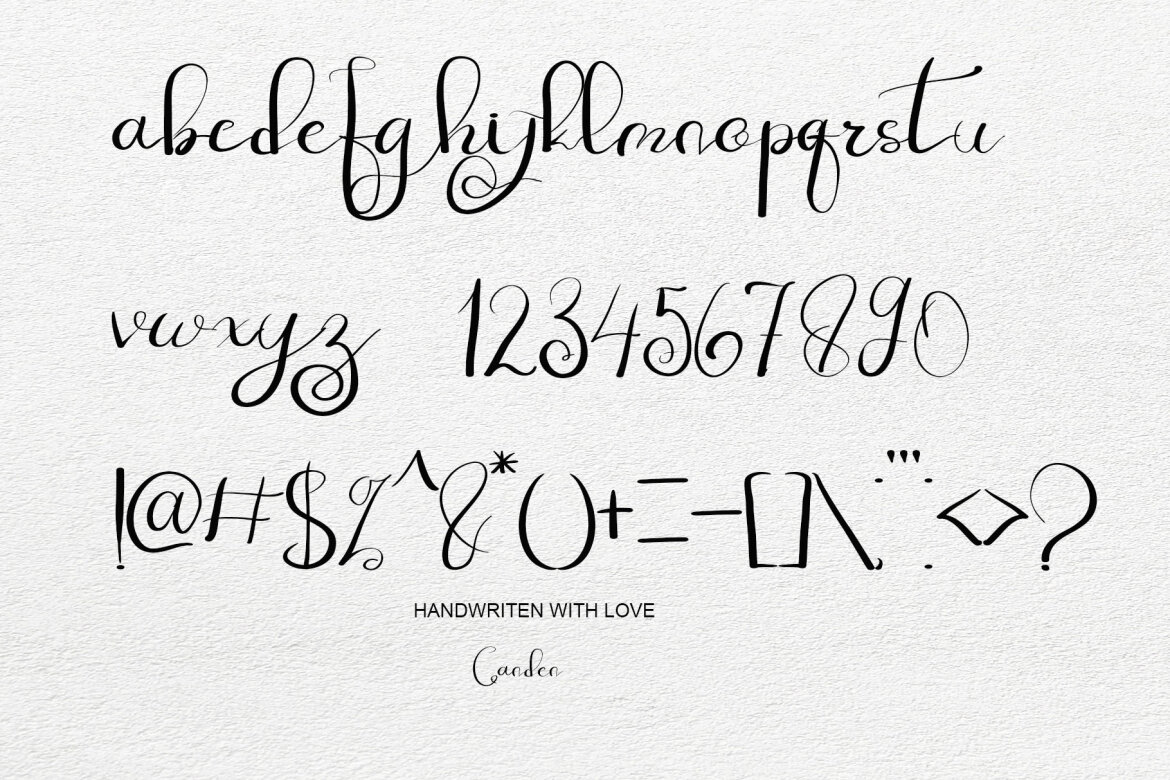 abcdefghijklmnopqrstu
vwxyz 1234567890
!@#$%^&*()+=-[]\;:'".<>?
HANDWRITEN WITH LOVE
Canden